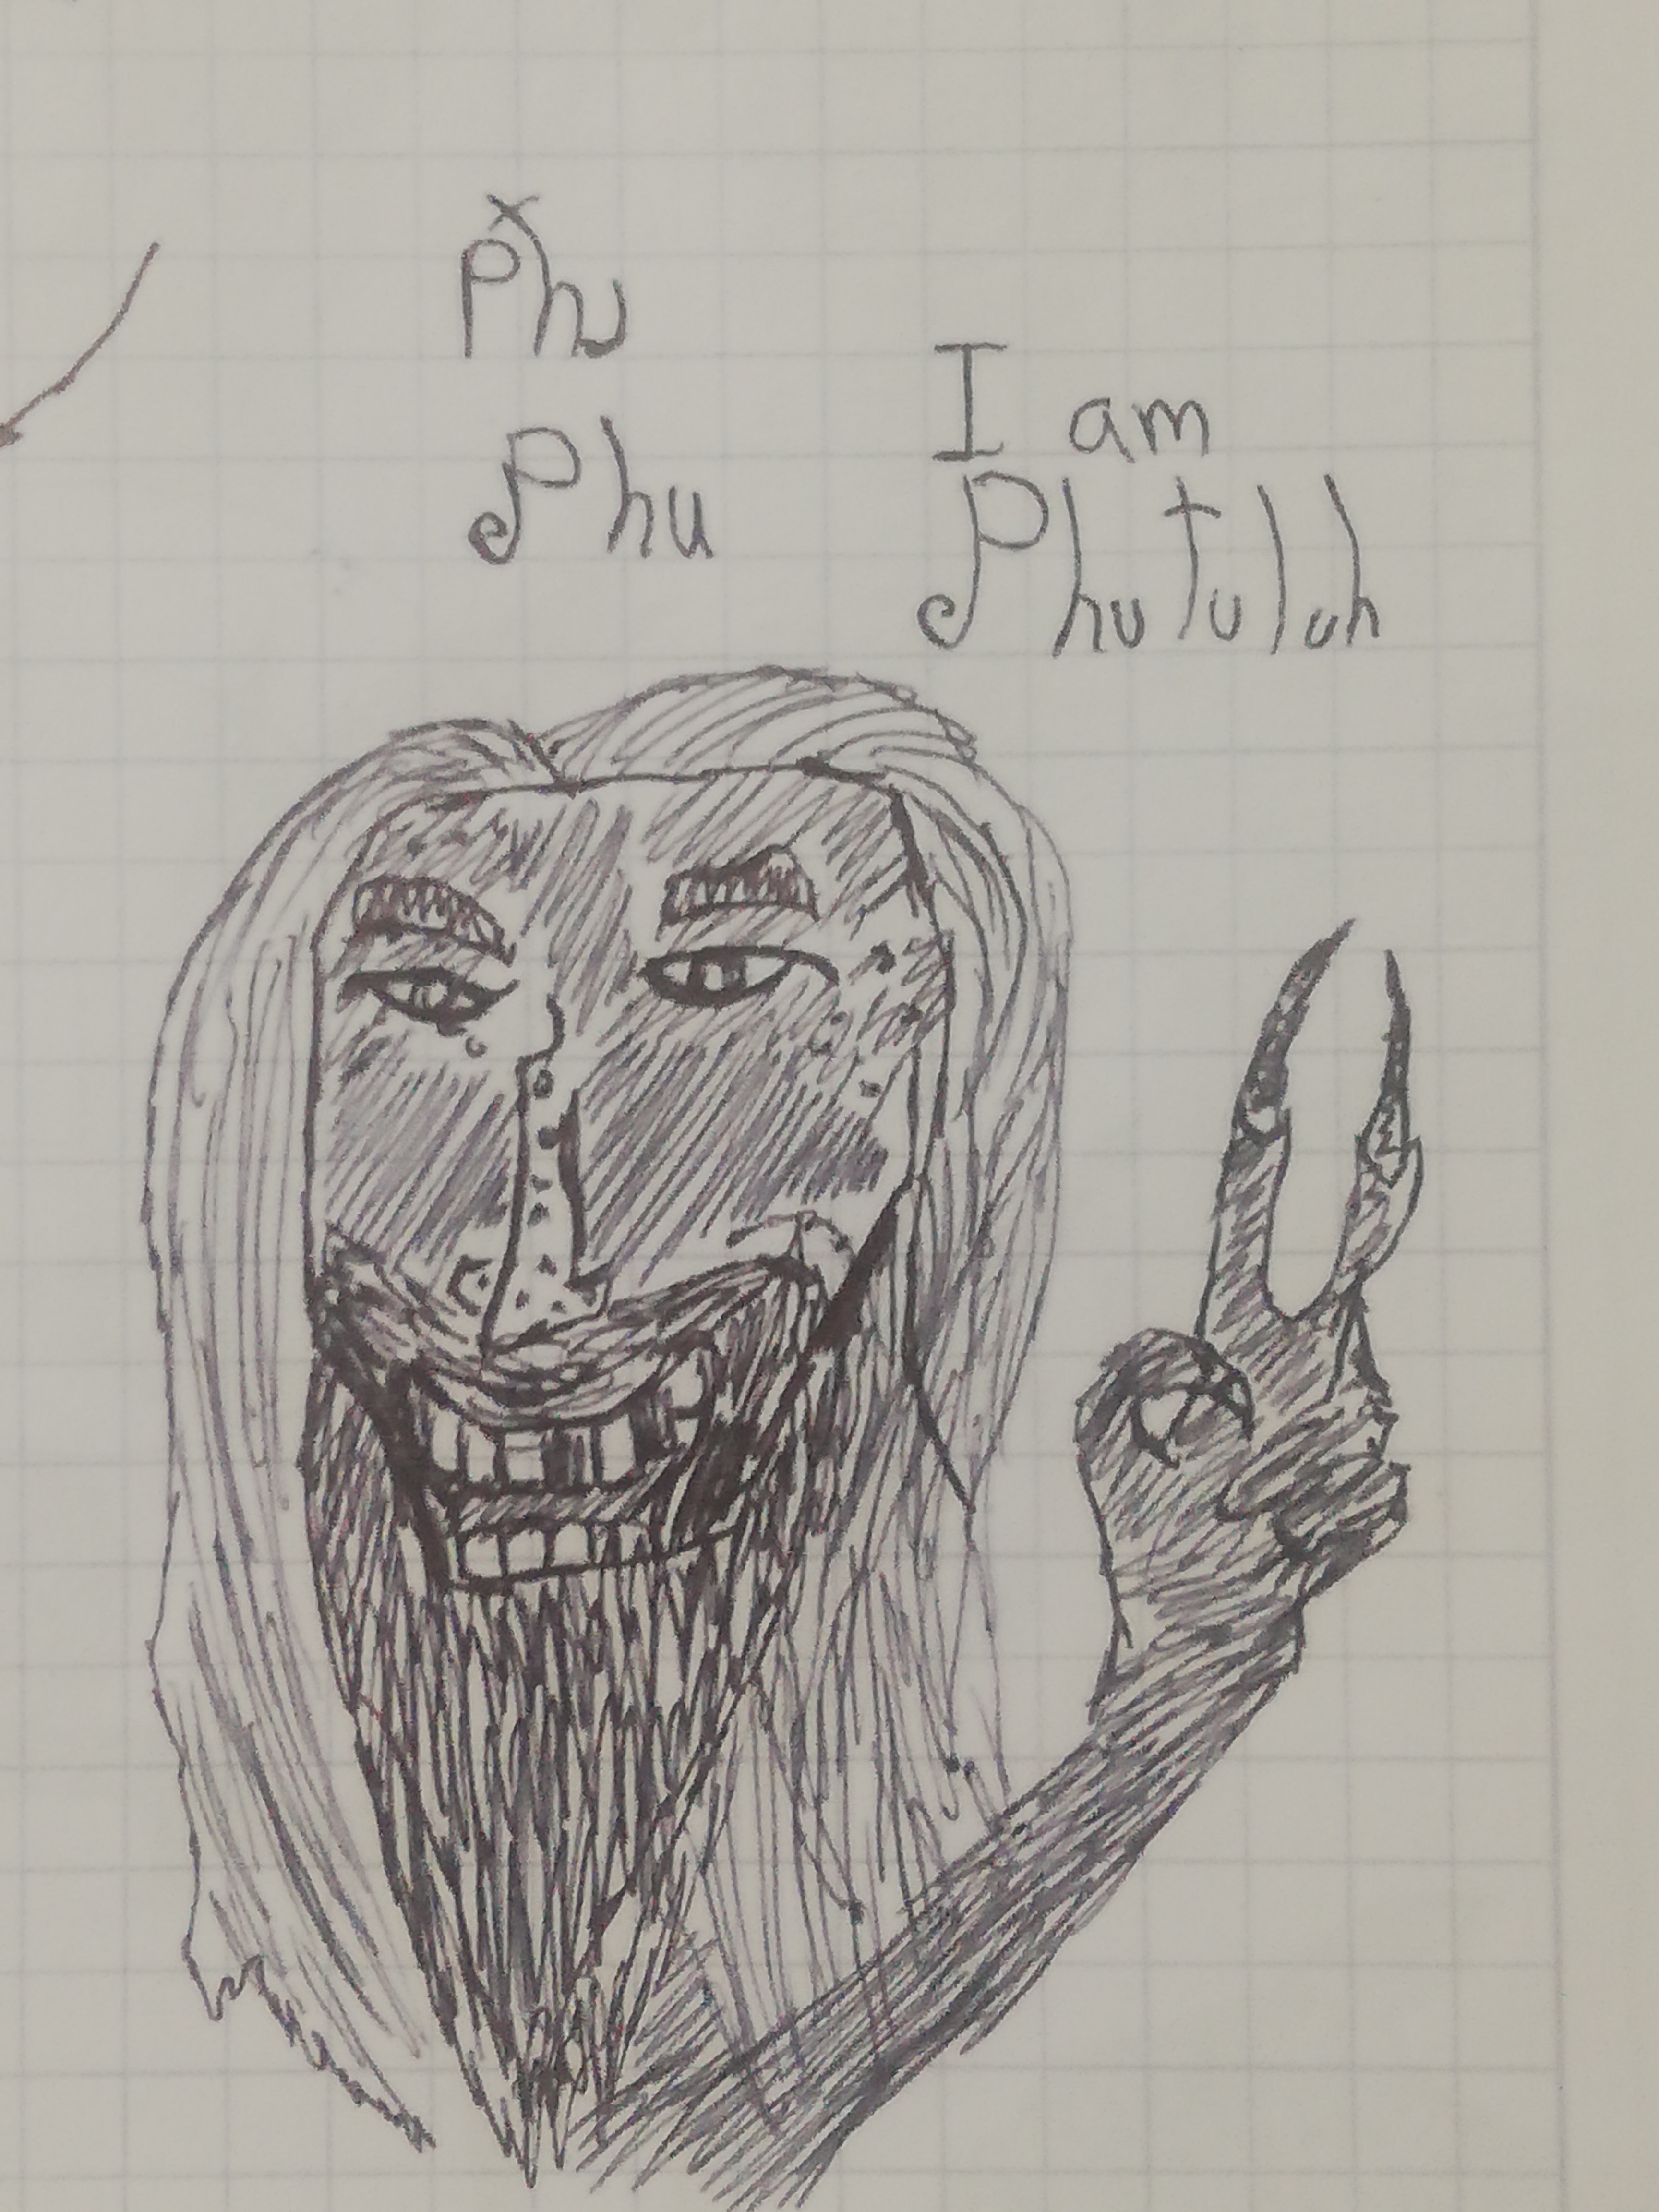 Phu
Phu
I am
Phutuluh